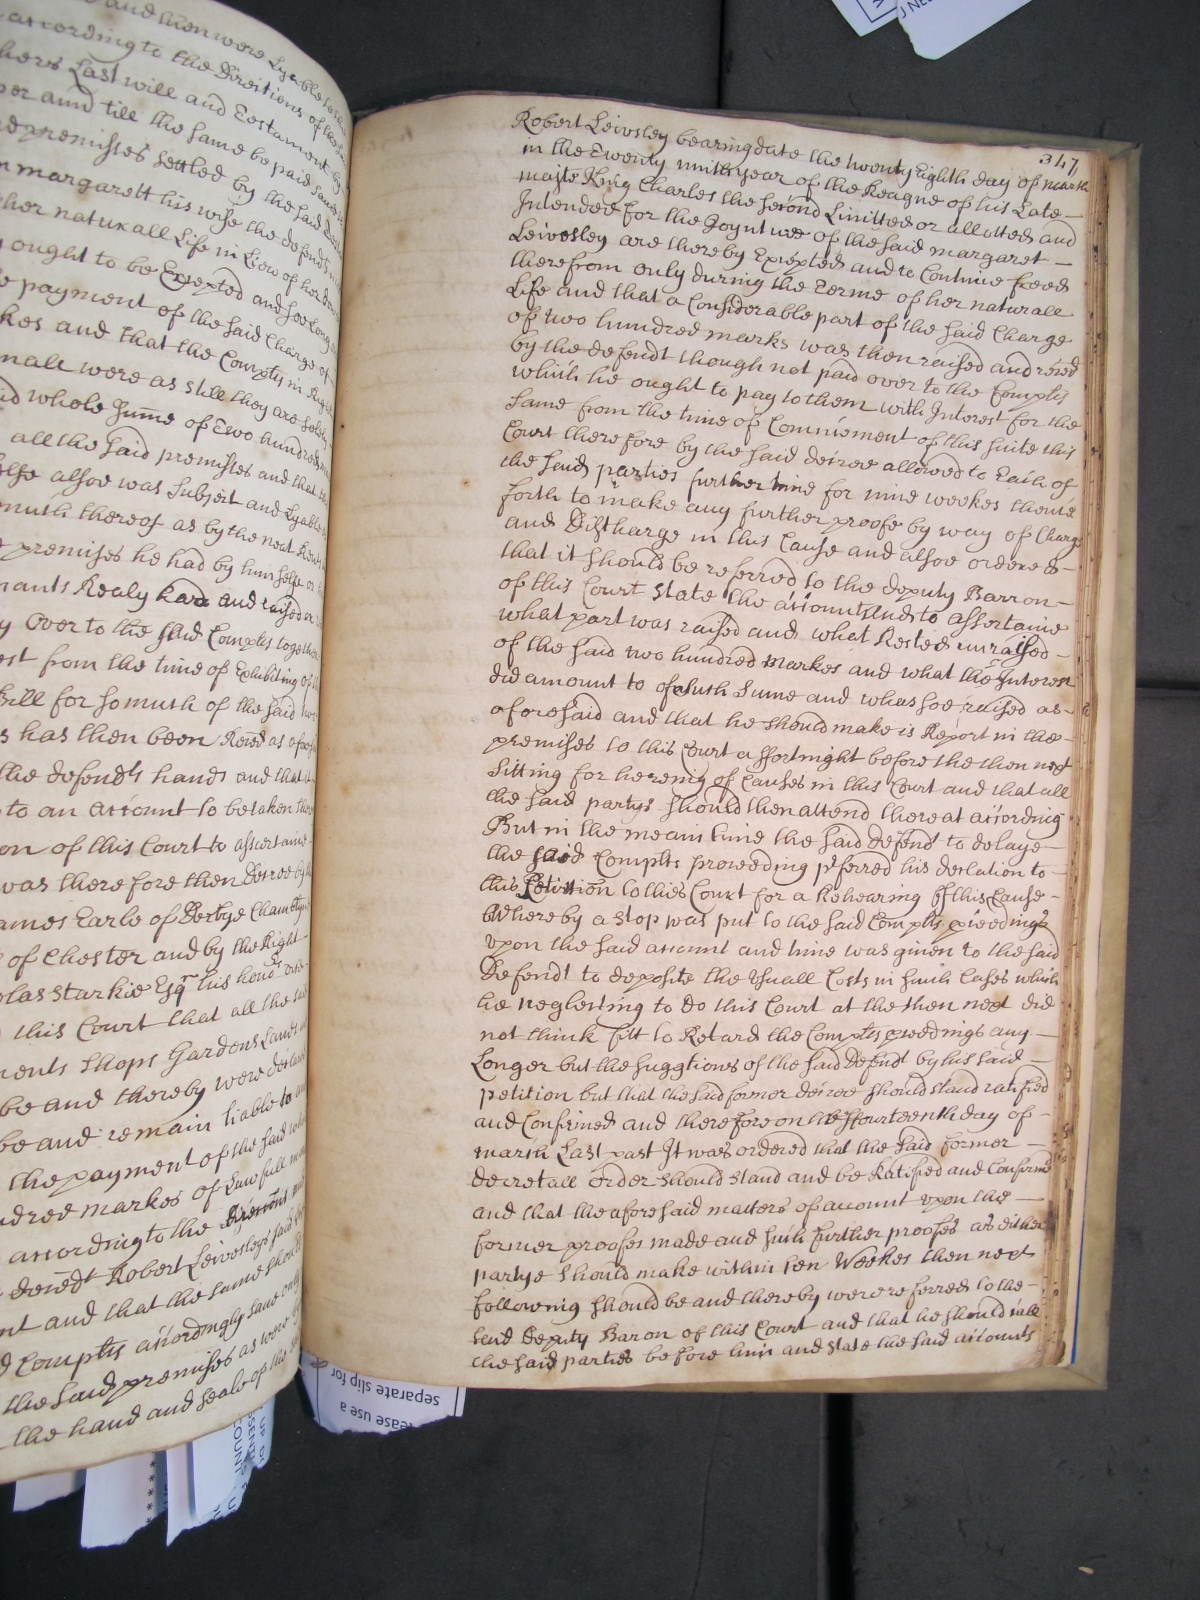 and then were Lyable to the
according to the Directions of the said
hers Last will and Testament
per annū till the same be paid
premisses settled by the said
margarett his wife the defendt
her naturall Life in Liew of her
ought to be Excepted and soe Long
payment of the said Charge of
kes and that the Complts in Right
mall were as still they are solely
id whole Sum̄e of Two hundred
all the said premisses and that
alsoe was Subject and Lyable
much thereof as by the neat Rents
premises he had by himselfe or
nants Realy had and raised or
Over to the said Complts together
est from the time of Exhibiting of
Bill for so much of the said
s has then been Receīd as afores
the defendts hands and that
to an account to be taken
on of this Court to assertaine
was therefore then decreed by
James Earle of Derbye Chamb
of Chester and by the Right
olas Starkie Esqr his hono
this Court that all the said
ments Shops Gardens Lands
be and thereby were declared
be and remain liable to
the payment of the said
dred markes of Lawfull
according to the direcc̄ons
decēdt Robert Leivesleys said
nt and that the same should
d Complts accordingly save only
the said premises as were
the hand and seale of the
347
Robert Leivsley bearing date the twenty Eighth day of march
in the Twenty ninth year of the Reagne of his Late
majte King Charles the second Limitted or allotted and
Intended for the Joynture of the said margaret
Leivesley are thereby Excepted and to Continue freed
therefrom only during the Terme of her naturall
Life and that a Considerable part of the said Charge
of two hundred marks was then raised and recēd
by the defendt though not paid over to the Complts
which he ought to pay to them with Interest for the
same from the time of Commencment of this suite this
Court therefore by the said decree allowed to Each of
the said parties further time for nine weekes thence
forth to make any further proofe by way of Charge
and Discharge in this Cause and alsoe ordered
that it should be referred to the deputy Barron
of this Court State the account and to assertaine
what part was raised and what Rested unraised
of the said two hundred markes and what the Interest
did amount to of such Sume and what soe raised as
aforesaid and that he should make is Report in the
premises to this Court a ffortnight before the then next
Sitting for hereing of Causes in this Court and that all
the said partys should then attend there at according
But in the mean time the said defend to delaye
the said Complts proceeding pferred his declation to
this Petition to this Court for a Rehearing of this Cause
Whereby a stop was put to the said Complts pceedings
upon the said account and time was given to the said
Defendt to deposite the usuall Costs in such Cases which
he neglecting to do this Court at the then next did
not think fitt to Retard the Complts pceedings any
Longer but the suggtiones of the said Defendt by his said
petition but that the said former decree should stand ratified
and Confirmed and therefore on the ffourteenth day of
march Last past It was ordered that the Said former
decretall order should stand and be Ratified and Confirmd
and that the aforesaid matters of account upon the
former proofes made and such further proofes as either
partye should make within ten Weekes then next
following should be and thereby were referred to the
said Deputy Baron of this Court and that he should call
the said parties before him and state the said accounts
separate slip for
ease use a
COUNT